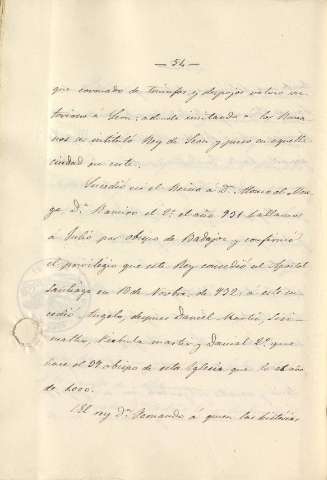 — 54 —
que coronado de triunfos y despojos volvió vic-
torioso á Leon: adonde imitando á los Roma-
nos se intituló Rey de Leon y puso en aquella
ciudad su corte.
Sucedió en el Reino á Dn. Alonso el Mon-
ge, Dn. Ramiro el 2º. el año 931 hallamos
á Julio por obispo de Badajoz y confirmó
el privilegio que este Rey concedió al Apostol
Santiago en 13 de Novbre. de 932: á este su-
cedió, Angelo, despues Daniel Martir,
martir y Daniel 2º. que
hace el 39 obispo de esta Iglesia que lo el año
de 1000.
El rey Dn. Fernando á quien las historias